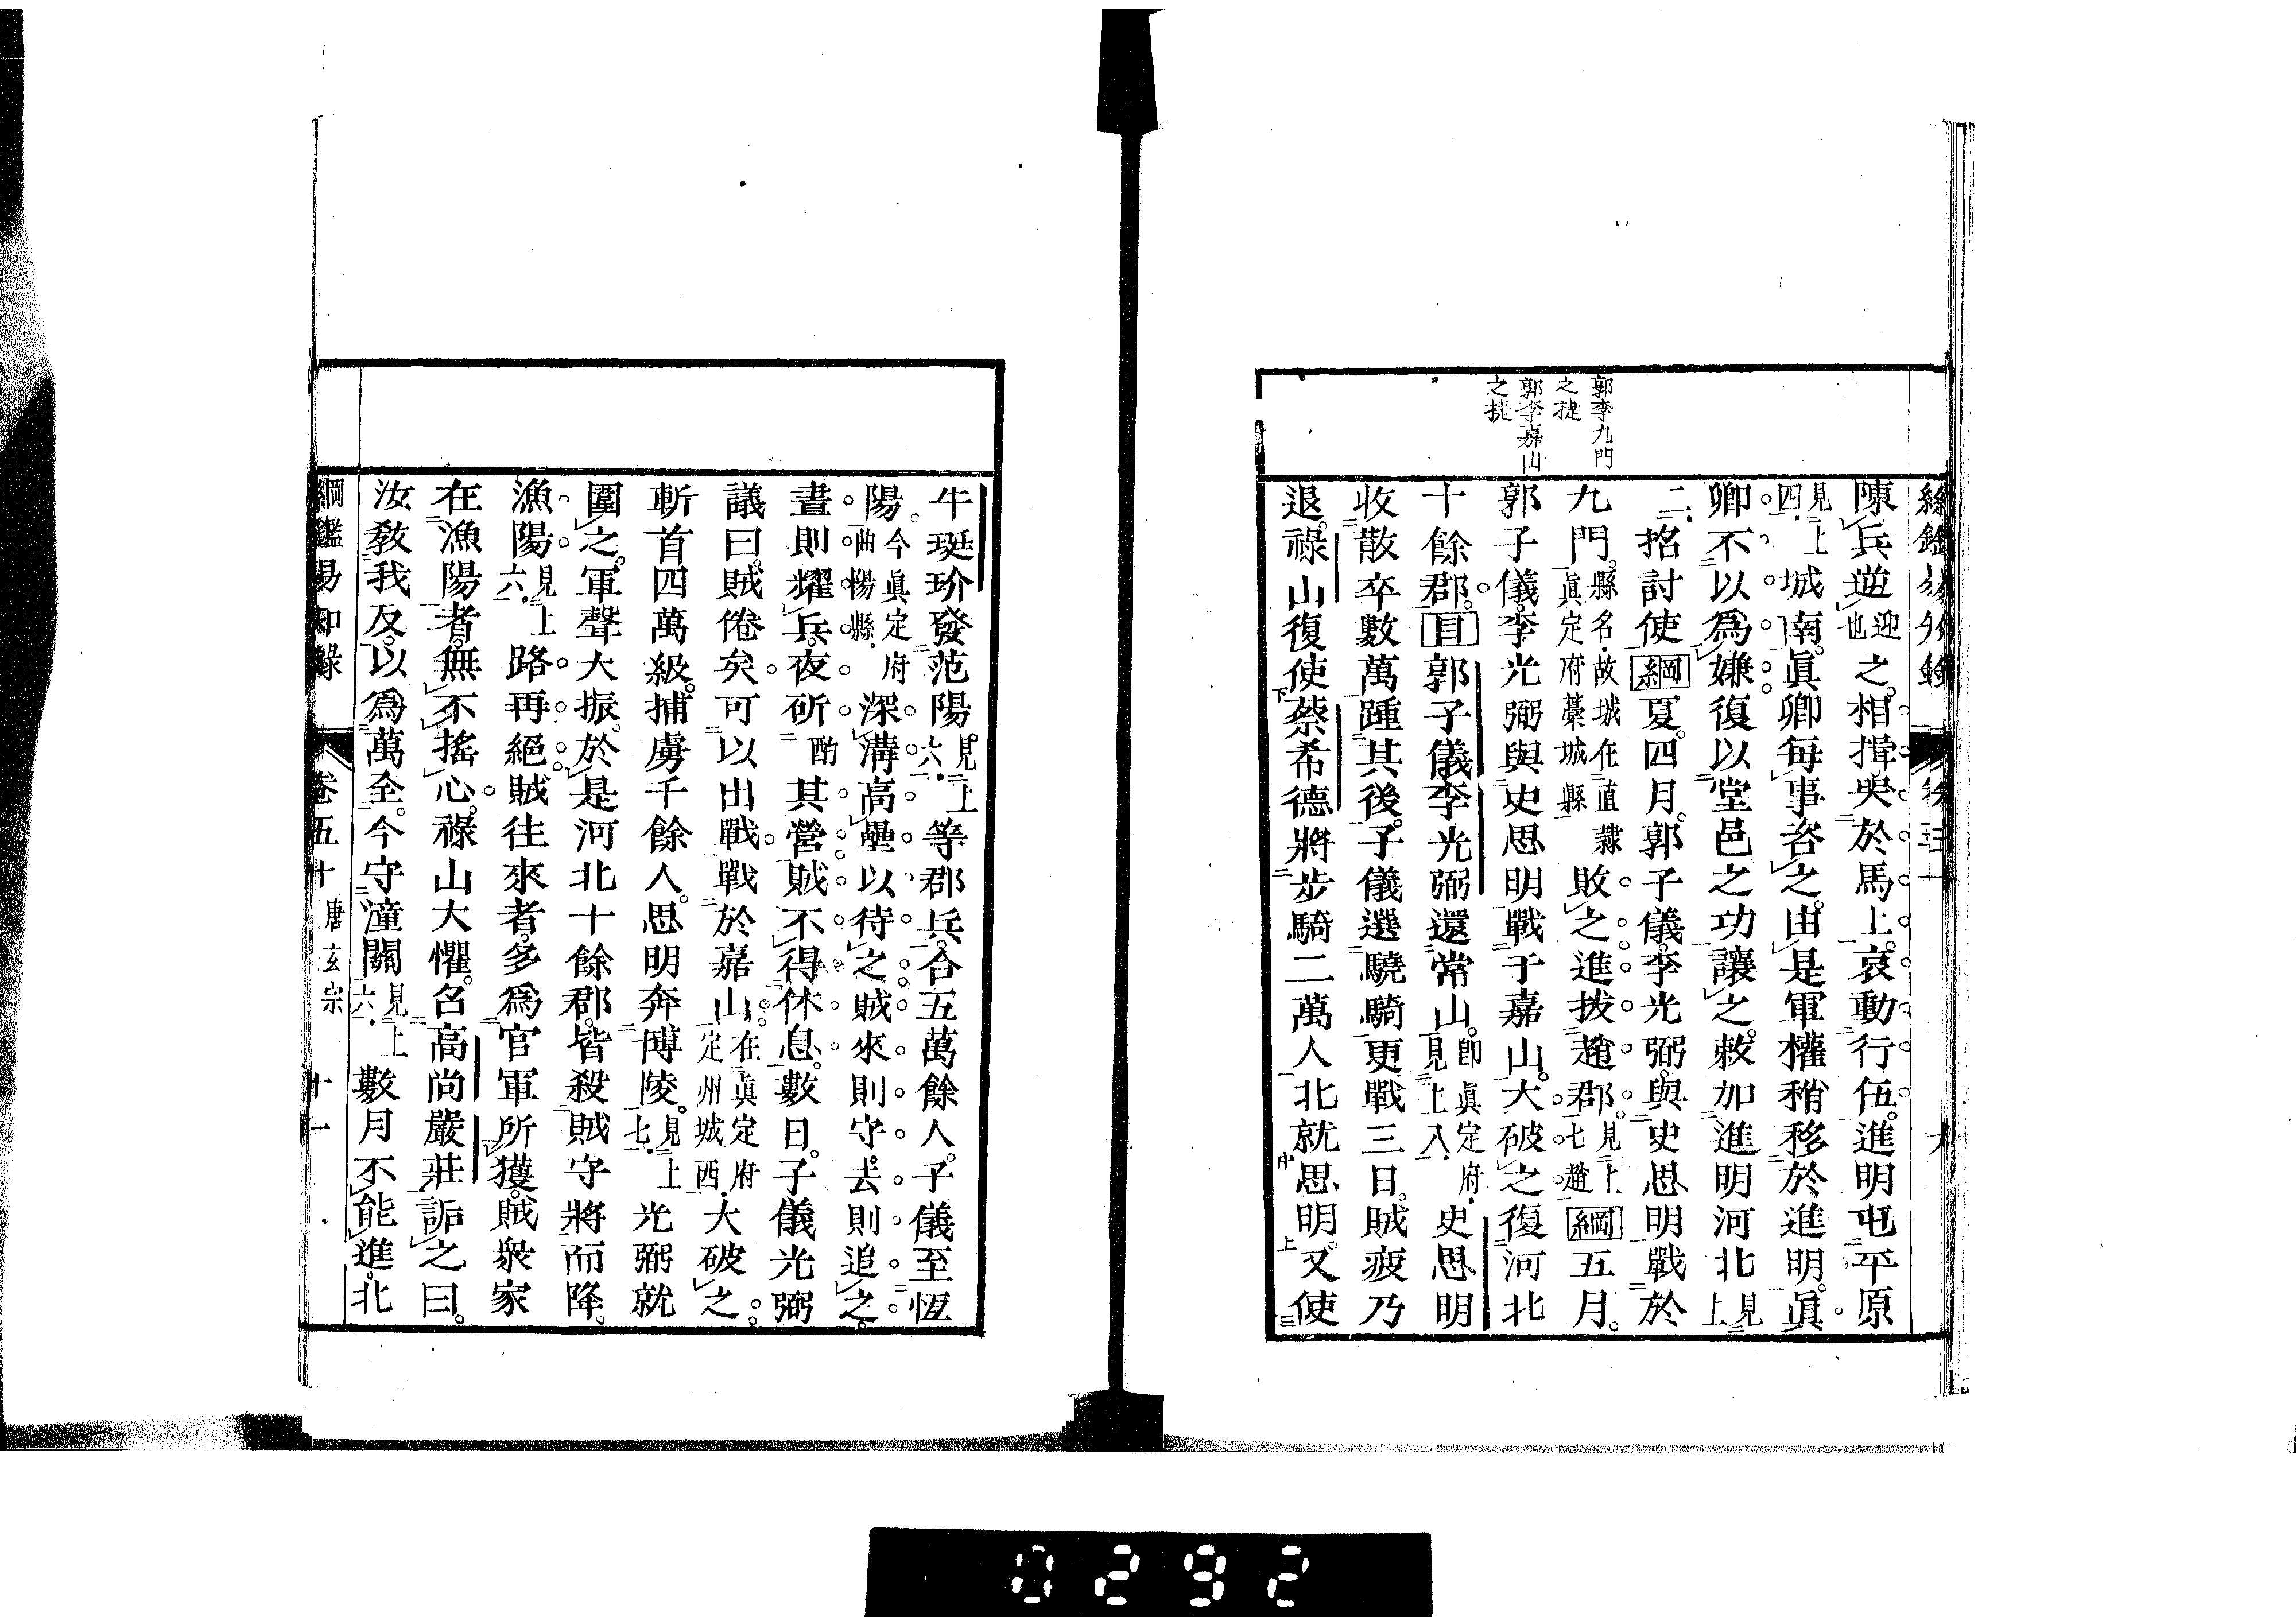 郭李九門
之捷
郭李嘉山
之捷
陳兵逆迎也之。相揖哭於馬上。哀動行伍。進明屯平原
見上四。城南。眞卿每事咨之。由是軍權稍移於進明。眞
卿不以爲嫌復以堂邑之功讓之。敕加進明河北見上
二。招討使綱夏。四月。郭子儀。李光弼。與史思明戰於
九門。縣名。故城在直隸眞定府藁城縣敗之進拔趙郡。見上七趙綱五月。
郭子儀。李光弼與史思明戰于嘉山。大破之。復河北
十餘郡。目郭子儀李光弼還常山。卽眞定府。見上八。史思明
收散卒數萬踵其後。子儀選驍騎更戰三日。賊疲乃
退。祿山復使蔡希德將步騎二萬人北就思明。又使
牛珽玠發范陽。見上六。等郡兵。合五萬餘人。子儀至恆
陽。今眞定府曲陽縣。深溝高壘以待之。賊來則守。去則追之。
晝則耀兵。夜斫酌其營。賊不得休息。數日。子儀光弼
議曰。賊倦矣。可以出戰。戰於嘉山。在眞定府定州城西。大破之。
斬首四萬級。捕虜千餘人。思明奔博陵。見上七。光弼就
圍之。軍聲大振。於是河北十餘郡。皆殺賊守將而降。
漁陽見上六。路再絕。賊往來者。多爲官軍所獲。賊衆家
在漁陽者。無不搖心。祿山大懼。召高尚嚴莊詬之曰。
汝敎我反。以爲萬全。今守潼關見上六。數月不能進。北
綱鑑易知錄 卷五十 唐玄宗 十一
0292